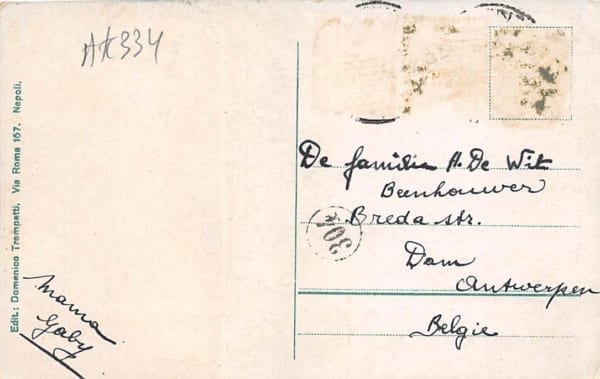 AK334
Edit.: Domenico Trampetti, Via Roma 167. Napoli.
Mama
Gaby
De familie A. De Wit
Beenhouwer
Breda str.
Dam
Antwerpen
Belgie
304